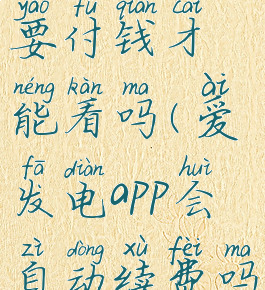 yào fù qián cái
要付钱才
néng kàn ma ài
能看吗(爱
fā diàn huì
发电app会
zì dòng xù fèi ma
自动续费吗